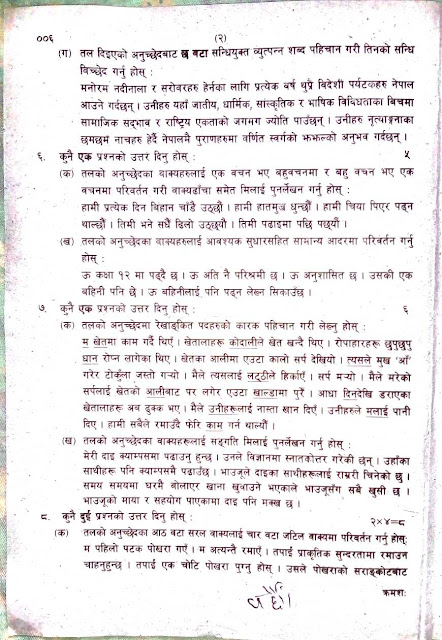 ००६
(२)
(ग) तल दिइएको अनुच्छेदबाट छ वटा सन्धियुक्त व्युत्पन्न शब्द पहिचान गरी तिनको सन्धि
विच्छेद गर्नु होस् :
मनोरम नदीनाला र सरोवरहरु हेर्नका लागि प्रत्येक बर्ष थुप्रै विदेशी पर्यटकहरु नेपाल
आउने गर्दछन् । उनीहरु यहाँ जातीय, धार्मिक, सांस्कृतिक र भाषिक विविधताका बिचमा
सामाजिक सद्भाव र राष्ट्रिय एकताको जगमग ज्योति पाउँछन् । उनीहरु नृत्याङ्गनाका
छमछम नाचहरु हेर्दै नेपालमै पुराणहरुमा वर्णित स्वर्गको झझल्को अनुभव गर्दछन् ।
६. कुनै एक प्रश्नको उत्तर दिनु होस् : ५
(क) तलको अनुच्छेदका वाक्यहरुलाई एक वचन भए बहुवचनमा र बहु वचन भए एक
वचनमा परिवर्तन गरी वाक्यढाँचा समेत मिलाई पुनर्लेखन गर्नु होस् :
हामी प्रत्येक दिन बिहान चाँडै उठ्छौं । हामी हातमुख धुन्छौं । हामी चिया पिएर पढ्न
थाल्छौं । तिमी भने सधैं ढिलो उठ्छ्यौ । तिमी पढाइमा पछि पर्छ्यौ ।
(ख) तलको अनुच्छेदका वाक्यहरुलाई आवश्यक सुधारसहित सामान्य आदरमा परिवर्तन गर्नु
होस् :
ऊ कक्षा १२ मा पढ्दै छ । ऊ अति नै परिश्रमी छ । ऊ अनुशासित छ । उसकी एक
बहिनी पनि छे । ऊ बहिनीलाई पनि पढ्न लेख्न सिकाउँछ ।
७. कुनै एक प्रश्नको उत्तर दिनु होस् : ६
(क) तलको अनुच्छेदमा रेखाङ्कित पदहरुको कारक पहिचान गरी लेख्नु होस् :
म खेतमा काम गर्दै थिएँ । खेतालाहरू कोदालीले खेत खन्दै थिए । रोपाहारहरू छुपुछुपु
धान रोप्न लागेका थिए । खेतका आलीमा एउटा कालो सर्प देखियो । त्यसले मुख 'आँ'
गरेर टोक्ला जस्तो गर्‍यो । मैले त्यसलाई लट्ठीले हिर्काएँ । सर्प मर्‍यो । मैले मरेको
सर्पलाई खेतको आलीबाट पर लगेर एउटा खाल्डामा पुरें । आधा दिनदेखि डराएका
खेतालाहरू अब ढुक्क भए । मैले उनीहरूलाई नास्ता खान दिएँ । उनीहरुले मलाई पानी
दिए । हामी सबैले रमाउँदै फेरि काम गर्न थाल्यौं ।
(ख) तलको अनुच्छेदका वाक्यहरूलाई सङ्गति मिलाई पुनर्लेखन गर्नु होस् :
मेरी दाइ क्याम्पसमा पढाउनु हुन्छ । उनले विज्ञानमा स्नातकोत्तर गरेकी छन् । उहाँका
साथीहरू पनि क्याम्पसमै पढाउँछ । भाउजूले दाइका साथीहरूलाई राम्ररी चिनेको छ ।
समय समयमा घरमै बोलाएर खाना खुवाउने भएकाले भाउजूसँग सबै खुसी छ ।
भाउजूको माया र सहयोग पाएकामा दाइ पनि मक्ख छ ।
८. कुनै दुई प्रश्नको उत्तर दिनु होस् : २×४=८
(क) तलको अनुच्छेदका आठ वटा सरल वाक्यलाई चार वटा जटिल वाक्यमा परिवर्तन गर्नु होस्:
म पहिलो पटक पोखरा गएँ । म अत्यन्तै रमाएँ । तपाईं प्राकृतिक सुन्दरतामा रमाउन
चाहनुहुन्छ । तपाईं एक चोटि पोखरा पुग्नु होस् । उसले पोखराको सराङ्कोटबाट
क्रमशः